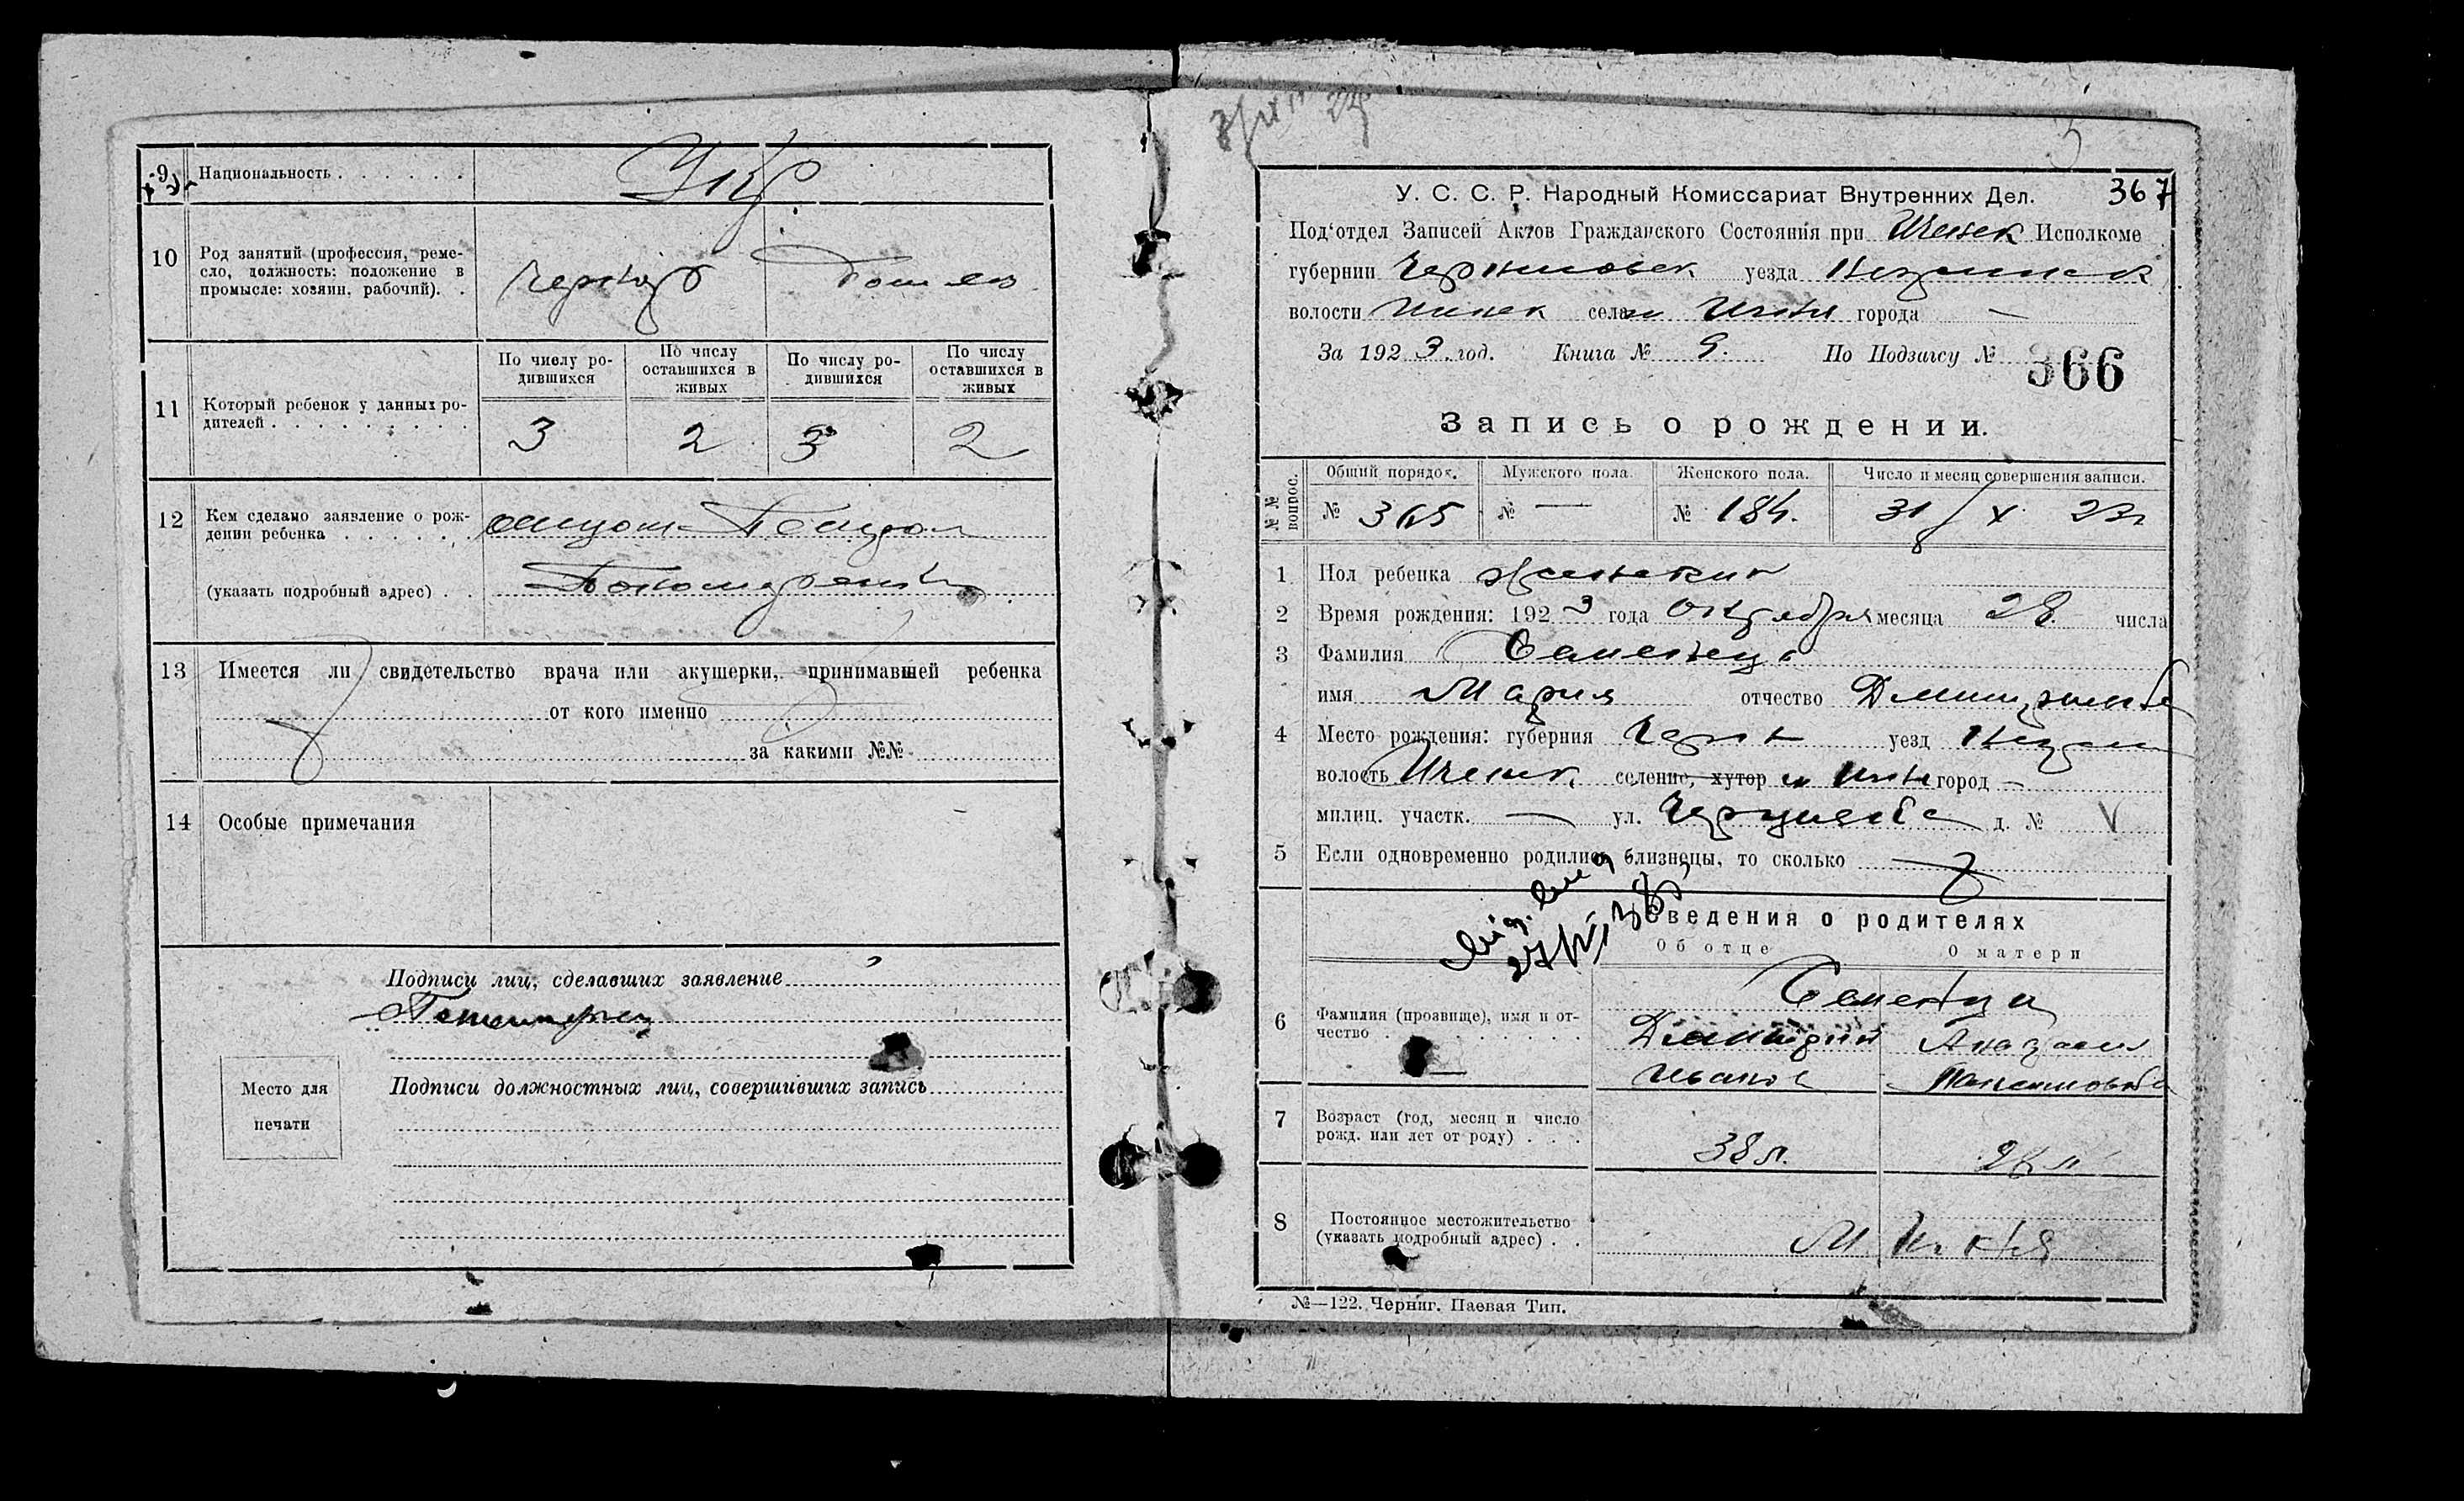 9 Национальность . . . . . . Укр.
10 Род занятий (профессия, реме-
сло, должность: положение в
промысле: хозяин, рабочий). .
11 Который ребенок у данных ро-
дителей . . . . . . . . . .
По числу ро-
дившихся
По числу
оставшихся в
живых
По числу ро-
дившихся
По числу
оставшихся в
живых
3 2 3 2
12 Кем сделано заявление о рож-
дении ребенка . . . . . .
(указать подробный адрес) . .
13 Имеется ли свидетельство врача или акушерки, принимавшей ребенка
от кого именно
за какими №№
14 Особые примечания
Подписи лиц, сделавших заявление
Место для
печати
Подписи должностных лиц, совершивших запись
367
У. С. С. Р. Народный Комиссариат Внутренних Дел.
Под‘отдел Записей Актов Гражданского Состояния при Иченск Исполкоме
губернии Черниговск уезда Нежинск
волости Иченск села м Ичня города —
За 1923 год. Книга № 9. По Подзагсу № 366
Запись о рождении.
№№ вопрос.
Общий порядок. Мужского пола. Женского пола. Число и месяц совершения записи.
№ 365 № — № 184. 31/X 23
1 Пол ребенка женский
2 Время рождения: 1923 года Октября месяца 28 числа
3 Фамилия Семенец
имя Мария отчество Дмитриевна
4 Место рождения: губерния Черн уезд Нежин
волость Иченск. селение, хутор м Ичня город —
милиц. участк. — ул. д. № V
5 Если одновременно родились близнецы, то сколько
Сведения о родителях
Об отце О матери
6 Фамилия (прозвище), имя и от-
чество . . . . . . . . .
Семенец
Дмитрий
Иванов
7 Возраст (год, месяц и число
рожд. или лет от роду) . . .
38 л.
8 Постоянное местожительство
(указать подробный адрес) . .
М Ичня
№—122. Черниг. Паевая Тип.